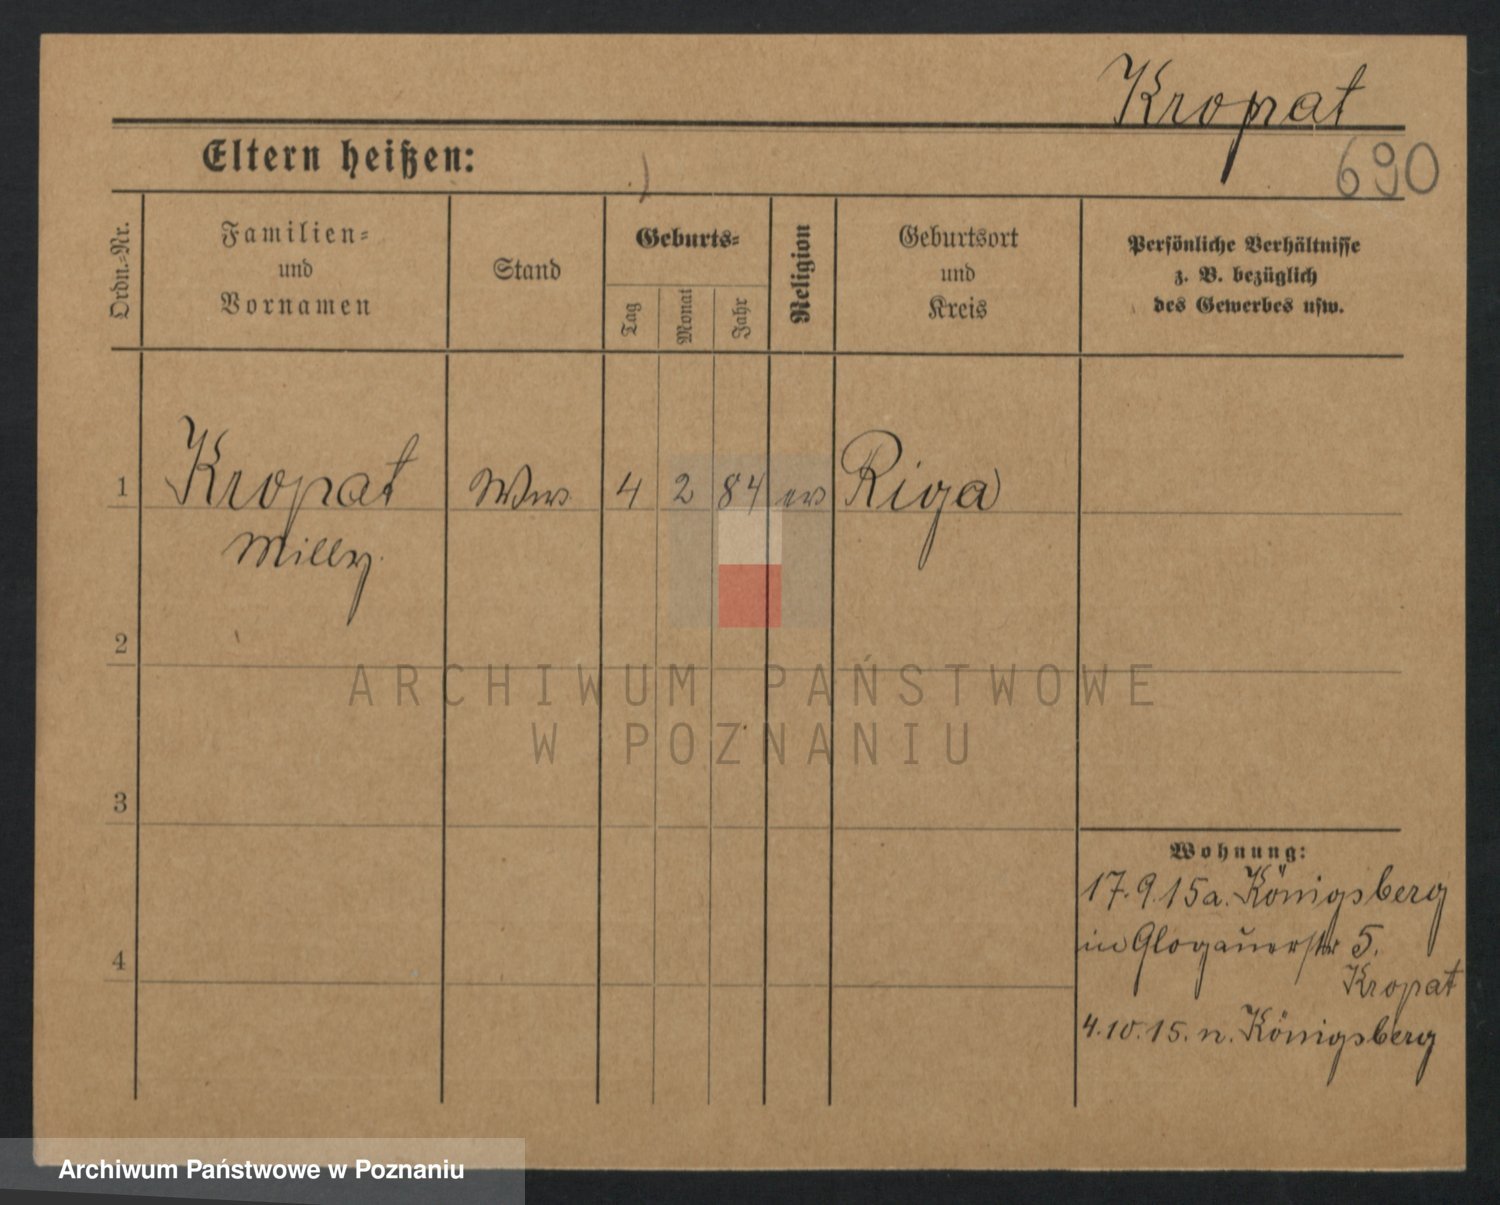 Kropat
690
Eltern heißen:
Ordn.-Nr.
Familien-
und
Vornamen
Stand
Geburts-
Tag
Monat
Jahr
Religion
Geburtsort
und
Kreis
Persönliche Verhältnisse
z. B. bezüglich
des Gewerbes usw.
1
Kropat
Milly.
Ww
4
2
84
ev
Riga
2
ARCHIWUM PAŃSTWOWE
W POZNANIU
3
Wohnung:
17.9.15 a. Königsberg
in Glogauerstr 5.
Kropat
4
4.10.15. n. Königsberg
Archiwum Państwowe w Poznaniu